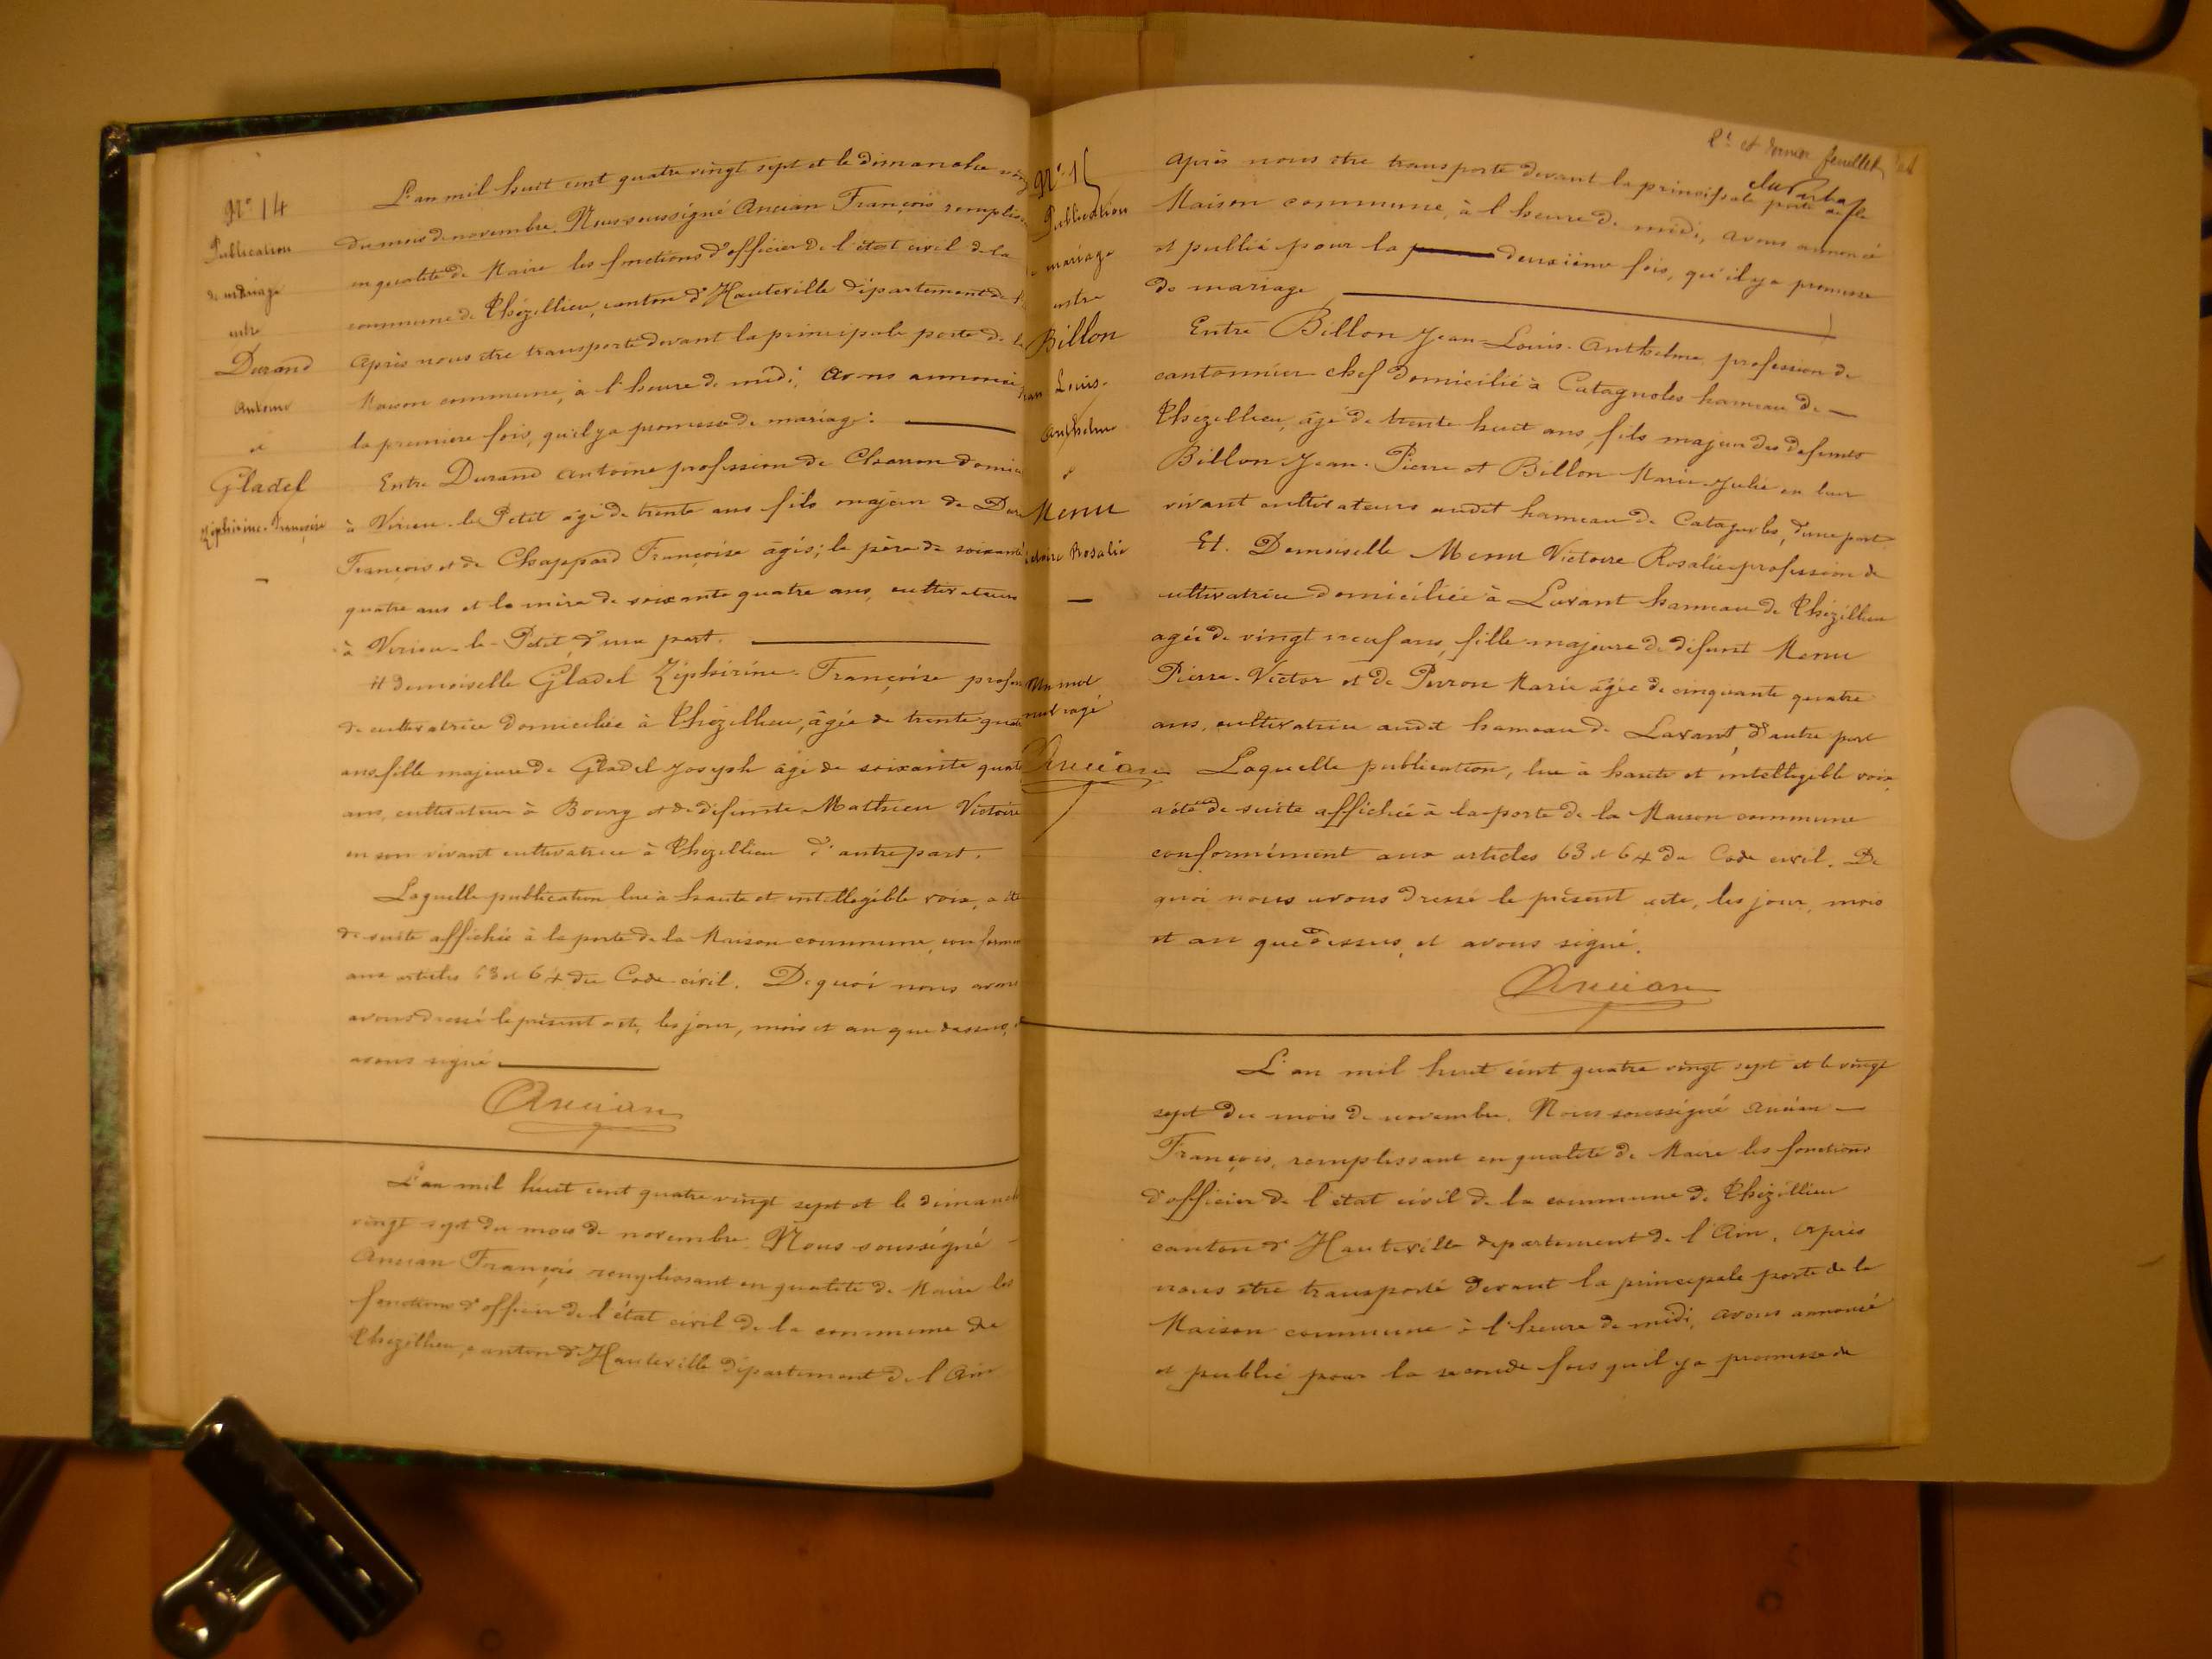 N° 14
Publication
de mariage
entre
Durand
Antoine
et
Gladel
Zéphirine-Françoise
L'an mil huit cent quatre vingt sept et le dimanche ving
du mois de novembre. Nous soussigné Ancian François remplis
en qualité de Maire les fonctions d'officier de l'état civil de la
commune de Thézillieu, canton d'Hauteville département de l'
après nous être transporté devant la principale porte de la
Maison commune, à l'heure de midi, avons annoncé
la première fois, qu'il y a promesse de mariage:
Entre Durand Antoine profession de Charron domici
à Virieu-le-Petit âgé de trente ans fils majeur de Dur
François et de Chappard Françoise âgés; le père de soixante
quatre ans et la mère de soixante quatre ans, cultivateurs
à Virieu-le-Petit, d'une part.
Et demoiselle Gladel Zéphirine-Françoise profes
de cultivatrice domiciliée à Thézillieu, âgée de trente quatre
ans fille majeure de Gladel Joseph âgé de soixante quatr
ans, cultivateur à Bourg et de défunte Mathieu Victoire
en son vivant cultivatrice à Thézillieu d'autre part.
Laquelle publication lue à haute et intellegible voix, a été
de suite affichée à la porte de la Maison commune, conformm
aux articles 63 et 64 du Code civil. De quoi nous avons
avons dressé le présent acte, les jour, mois et an que dessus, et
avons signé
Ancian
L'an mil huit cent quatre vingt sept et le dimanch
vingt sept du mois de novembre. Nous soussigné
Ancian François remplissant en qualité de Maire les
fonctions d'officier de l'état civil de la commune de
Thézillieu, canton d'Hauteville département de l'Ain
N° 15
Publication
de mariage
entre
Billon
Jean Louis-
Anthelme
&
Menu
Victoire Rosalie
Un mot
nul rayé
Ancian
et dernier feuillet
après nous être transporté devant la principale porte de la
Maison commune, à l'heure de midi, avons annoncé
et publié pour la deuxième fois, qu'il y a promesse
de mariage
Entre Billon Jean-Louis-Anthelme profession de
cantonnier chef domicilié à Catagnoles hameau de
Thézillieu, âgé de trente huit ans, fils majeur des défunts
Billon Jean-Pierre et Billon Marie-Julie en leur
vivant cultivateurs audit hameau de Catagnoles, d'une part
Et. Demoiselle Menu Victoire Rosalie profession de
cultivatrice domiciliée à Lavant hameau de Thézillieu
âgée de vingt neuf ans, fille majeure de défunt Menu
Pierre-Victor et de Perron Marie âgée de cinquante quatre
ans, cultivatrice audit hameau de Lavant, d'autre part
Laquelle publication, lue à haute et intellegible voix,
a été de suite affichée à la porte de la Maison commune
conformément aux articles 63 et 64 du Code civil. De
quoi nous avons dressé le présent acte, les jour, mois
et an que dessus, et avons signé.
Ancian
L'an mil huit cent quatre vingt sept et le vingt
sept du mois de novembre. Nous soussigné Ancian
François, remplissant en qualité de Maire les fonctions
d'officier de l'état civil de la commune de Thézillieu
canton d'Hauteville département de l'Ain, après
nous être transporté devant la principale porte de la
Maison commune à l'heure de midi, avons annoncé
et publié pour la seconde fois qu'il y a promesse de